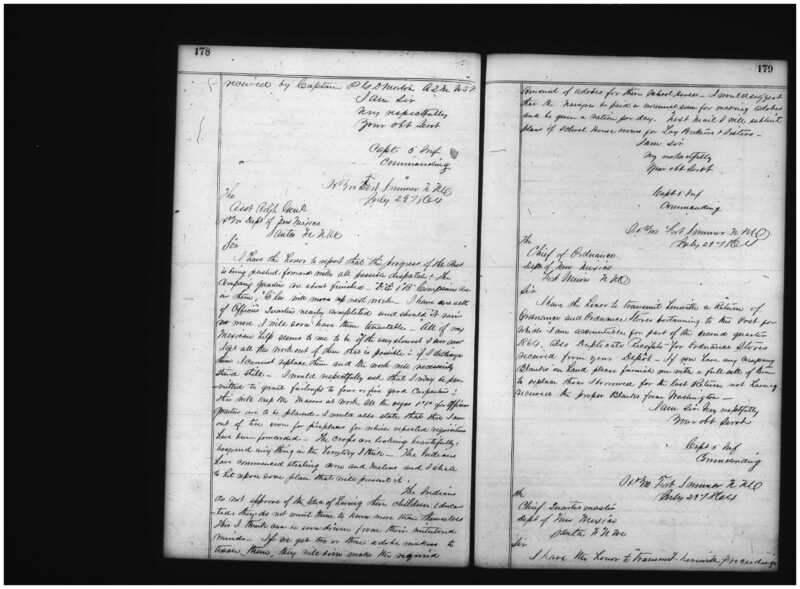 178
received by Captain
I am Sir
Very respectfully
Your obt Servt
Capt 5 Inf
Commanding
Fort Sumner N. M.
July 29th 1864
The
Asst Adjt Genl
Dept of New Mexico
Santa Fe N. M.
Sir
I have the honor to report that the progress of the Post
is being pushed forward with all possible dispatch & the
Company quarters are about finished. Companies are
in them, will move up next week. I have one sett
of Officers Quarters nearly completed and should it rain
no more I will soon have them tenantable. All of my
Mexican help seems to me to be of the very slowest I ever saw
I get all the work out of them that is possible; if I discharge
them I cannot replace them and the work will necessarily
stand still. I would respectfully ask that I may be per
mitted to grant furloughs to four or five good Carpenters;
this will keep the Masons at work. All the for Officers
quarters are to be planed. I would also state that I am
out of for fireplaces for which repeated requisitions
have been forwarded. The crops are looking beautifully;
beyond any thing in the Territory I think. The Indians
have commenced stealing corn and melons and I shall
to hit upon some plan that will prevent it.
The Indians
do not approve of the idea of having their children educa
ted; they do not want them to know more than themselves
This I think can be soon driven from their untutored
minds. If we get two or three adobe makers to
teach them, they will soon make the required
179
amount of adobes for their School house. I would suggest
that the be paid a sum for making adobes
and be given a ration per day. Next Mail I will submit
plan of School House room for Lay Brothers & Sisters.
I am Sir
Very respectfully
Your obt Servt
Capt 5 Inf
Commanding
Fort Sumner N. M.
July 29th 1864
The
Chief of Ordnance
Dept of New Mexico
Fort Union N. M.
Sir
I have the honor to transmit herewith a Return of
Ordnance and Ordnance Stores pertaining to this Post for
which I am accountable for part of the second quarter
1864. Also Duplicate Receipts for Ordnance Stores
received from your Depot. If you have any Company
Blanks on hand please furnish me with a full sett of them
to replace those I borrowed for the last Return not having
received the proper Blanks from Washington.
I am Sir Very respectfully
Your obt Servt
Capt 5 Inf
Commanding
Fort Sumner N. M.
July 29th 1864
The
Chief Quartermaster
Dept of New Mexico
Santa Fe N. M.
Sir
I have the honor to transmit herewith proceedings